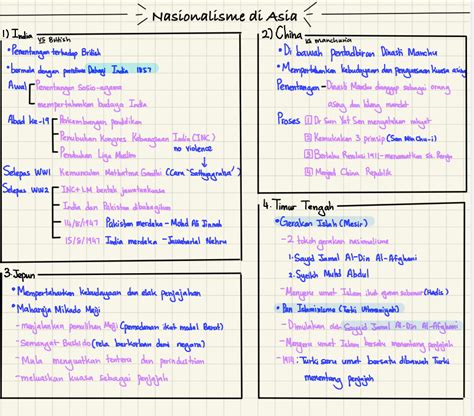 Nasionalisme di Asia
1) India vs British
• Penentangan terhadap British
• bermula dengan peristiwa Dahagi India 1857
Awal - Penentangan Sosio-agama
mempertahankan budaya India
Abad ke-19 - Perkembangan pendidikan
Penubuhan Kongres Kebangsaan India (INC)
Penubuhan Liga Muslim
no violence
Selepas WW1 Kemunculan Mahatma Gandhi (Cara "Sathyagraha")
Selepas WW2 - INC + LM bentuk jawatankuasa
India dan Pakistan dibahagikan
14/8/1947 Pakistan merdeka - Mohd Ali Jinnah
15/8/1947 India merdeka - Jawaharlal Nehru
2) China vs manchuria
• Di bawah pentadbiran Dinasti Manchu
• Mempertahankan kebudayaan dan penguasaan kuasa asing
Penentangan - Dinasti Manchu dianggap sebagai orang
asing dan hilang mandat
Proses 1 Dr Sun Yat Sen mengetahkan rakyat
2 Kemukakan 3 prinsip (San Min Chu-i)
3 Berlaku Revolusi 1911 - menamatkan Sis. Beraja
4 Menjadi China Republik
3. Jepun
• Mempertahankan kebudayaan dan elak penjajahan
• Maharaja Mikado Meiji
- menjalankan pemulihan Meiji (pemodenan ikut model Barat)
- Semangat Bushido (rela berkorban demi negara)
- Mula menguatkan tentera dan perindustrian
- meluaskan kuasa sebagai penjajah
4. Timur Tengah
• Gerakan Islah (Mesir)
- 2 tokoh gerakan nasionalisme
1. Sayid Jamal Al-Din Al-Afghani
2. Syeikh Muhd Abdul
- Menyeru umat Islam ikut quran (Hadis)
• Pan Islamisme (Turki Uthmaniyah)
- Dimulakan oleh Sayyid Jamal Al-Din Al-Afghani
- Menyeru umat Islam bersatu menentang penjajah
- 1914: Turki seru umat bersatu dibawah Turki
menentang penjajah